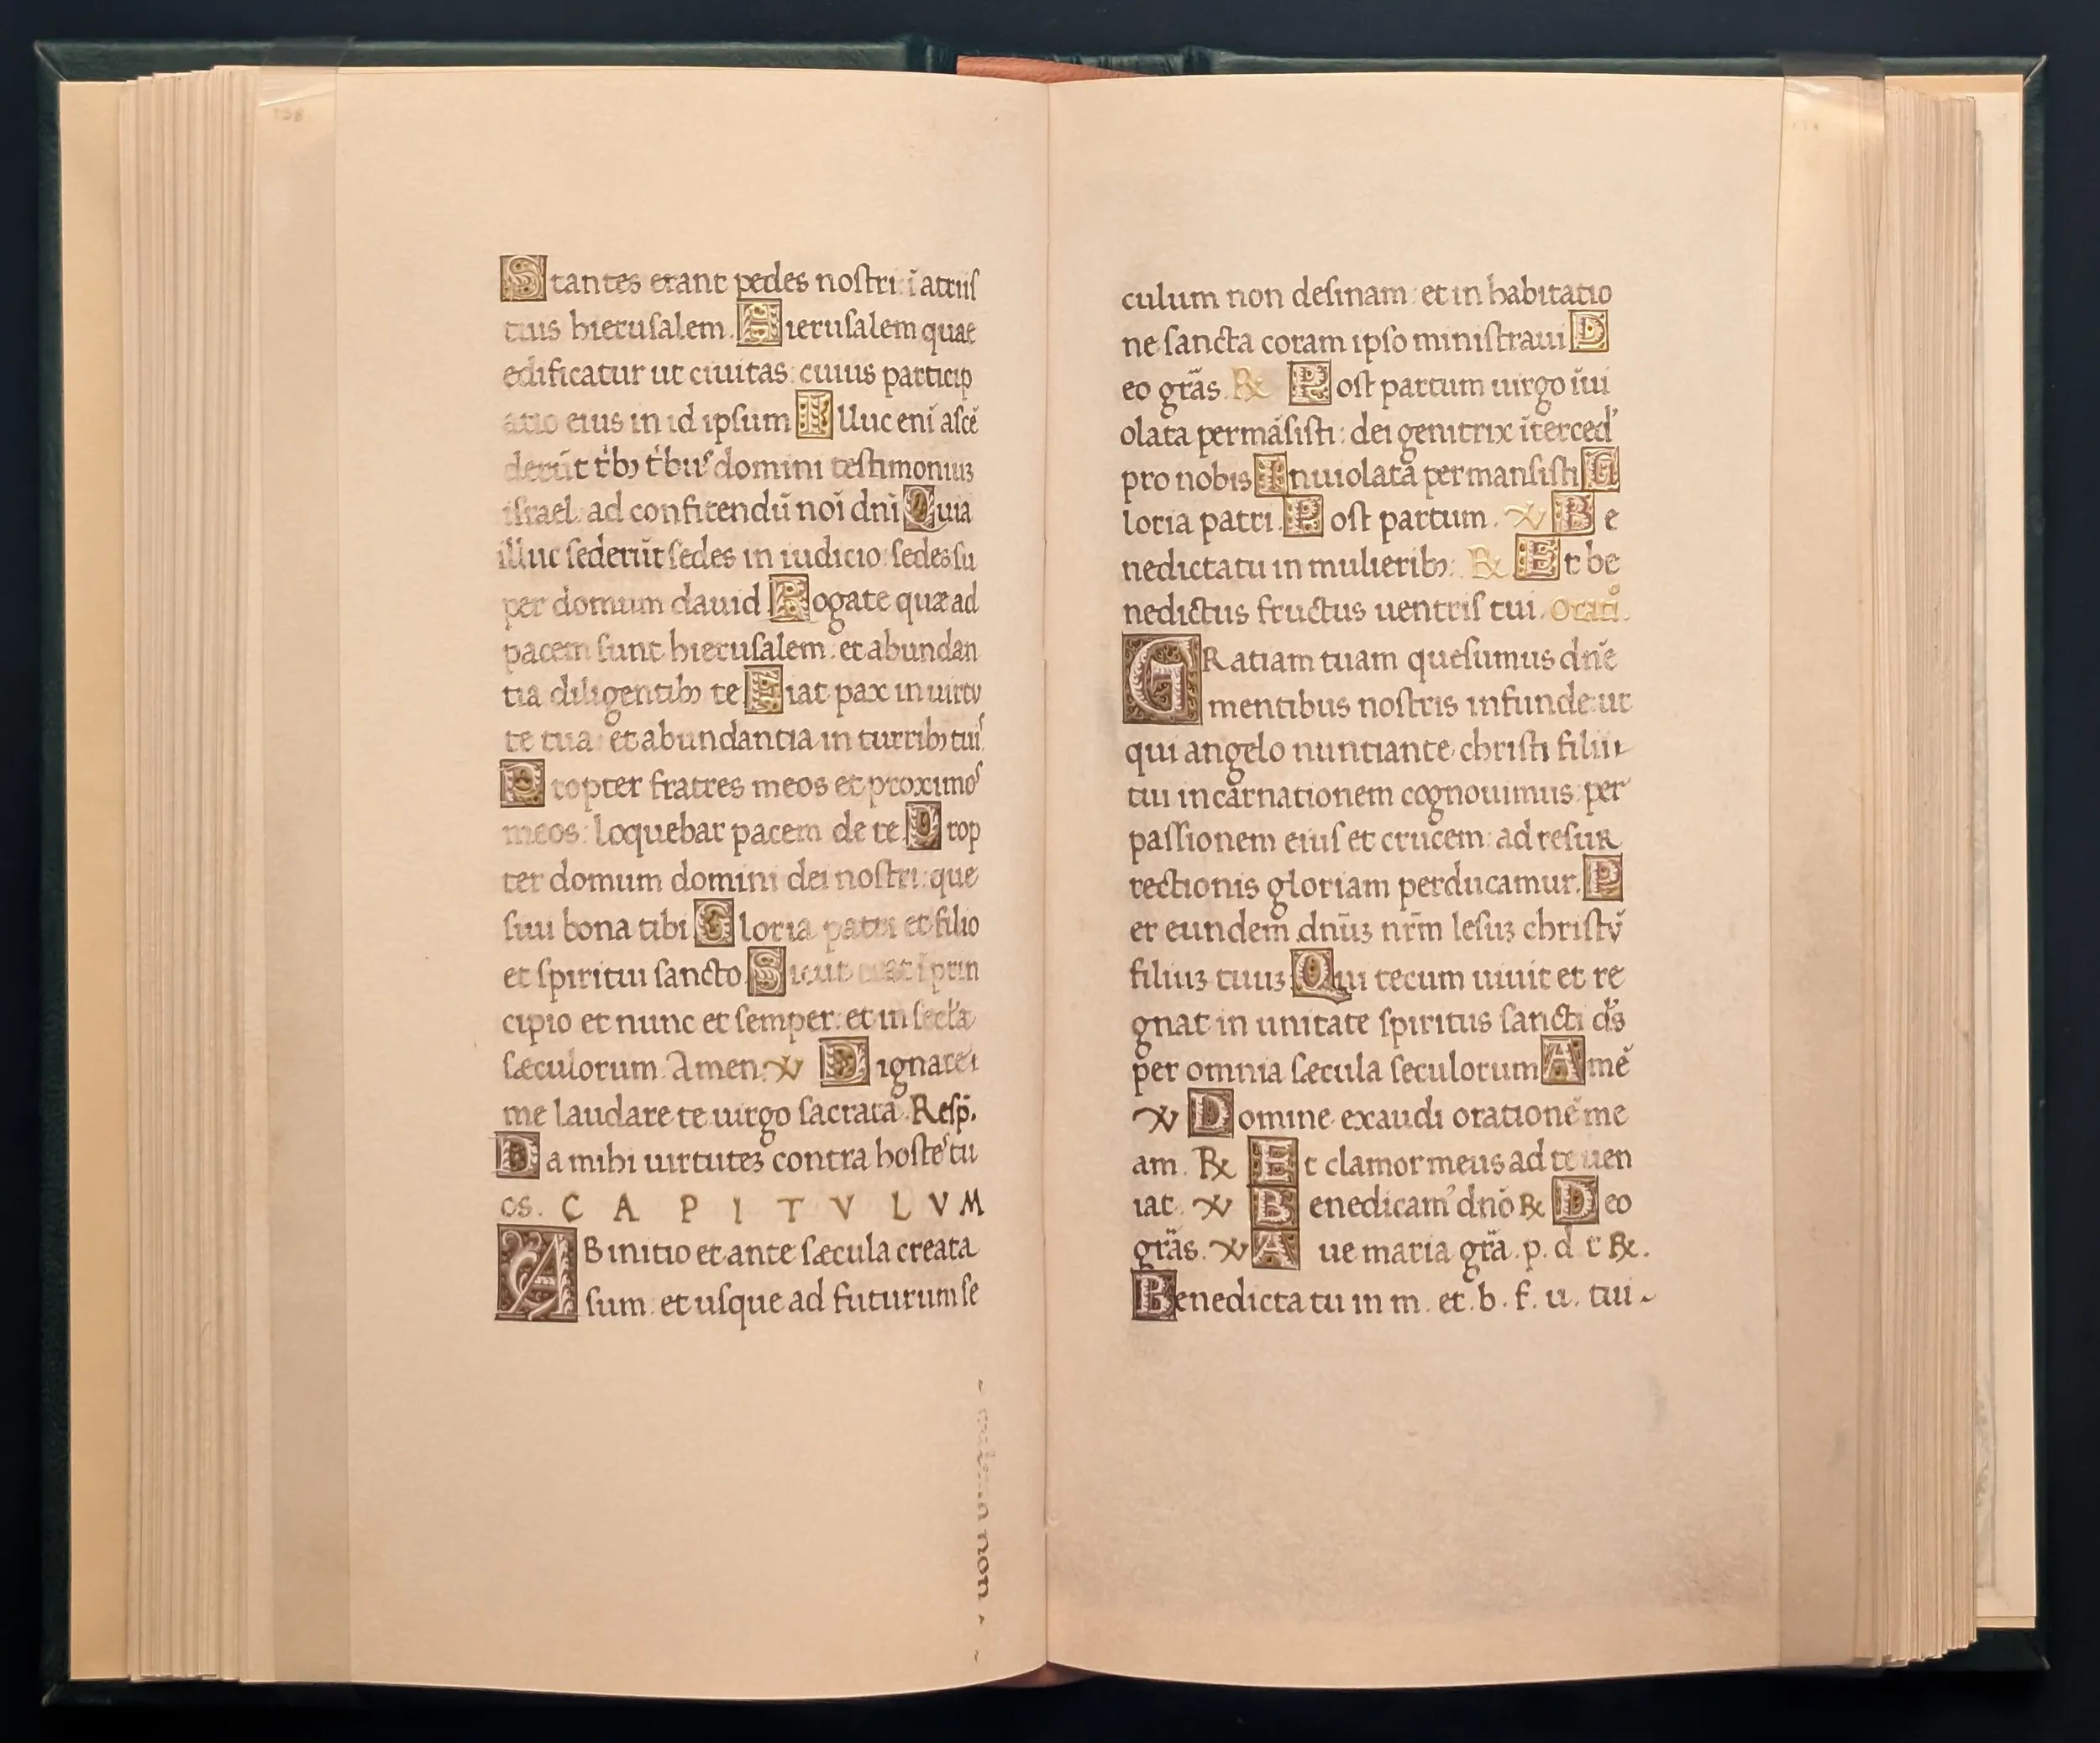 Stantes erant pedes nostri: ī atriis
tuis hierusalem. Hierusalem quae
edificatur ut ciuitas: cuius particip
atio eius in id ipsum Illuc eni ascē
derūt t'bꝫ t'bus domini testimoniuꝫ
israel: ad confitendū noi dni Quia
illuc sederūt sedes in iudicio: sedes su
per domum dauid Rogate quæ ad
pacem sunt hierusalem: et abundan
tia diligentibꝫ te Fiat pax in uirtu
te tua: et abundantia in turribꝫ tuis
Propter fratres meos et proximos
meos: loquebar pacem de te Prop
ter domum domini dei nostri: que
siui bona tibi Gloria patri et filio
et spiritui sancto Sicut erat ī prin
cipio et nunc et semper: et in secl'a
sæculorum. Amen. ℣ Dignare
me laudare te uirgo sacrata. Resp̄.
Da mihi uirtuteꝫ contra hostes tu
os. CAPITVLVM
AB initio et ante sæcula creata
sum: et usque ad futurum se
non
culum non desinam: et in habitatio
ne sancta coram ipso ministraui D
eo grās. ℟ Post partum uirgo īui
olata permāsisti: dei genitrix īterced'
pro nobis Inuiolata permansisti G
loria patri. Post partum. ℣ Be
nedicta tu in mulieribꝫ: ℟ Et be
nedictus fructus uentris tui. Orati°.
GRatiam tuam quesumus dn̄e
mentibus nostris infunde: ut
qui angelo nuntiante christi filii
tui incarnationem cognouimus: per
passionem eius et crucem: ad resur
rectionis gloriam perducamur. P
er eundem dn̄uꝫ nr̄m Iesuꝫ christū
filiuꝫ tuuꝫ Qui tecum uiuit et re
gnat in unitate spiritus sancti d's
per omnia sæcula seculorum Amē
℣ Domine exaudi orationē me
am. ℟ Et clamor meus ad te uen
iat. ℣ Benedicam' dnō ℟ Deo
grās. ℣ Aue maria grā. p. d. t ℟.
Benedicta tu in m. et. b. f. u. tui